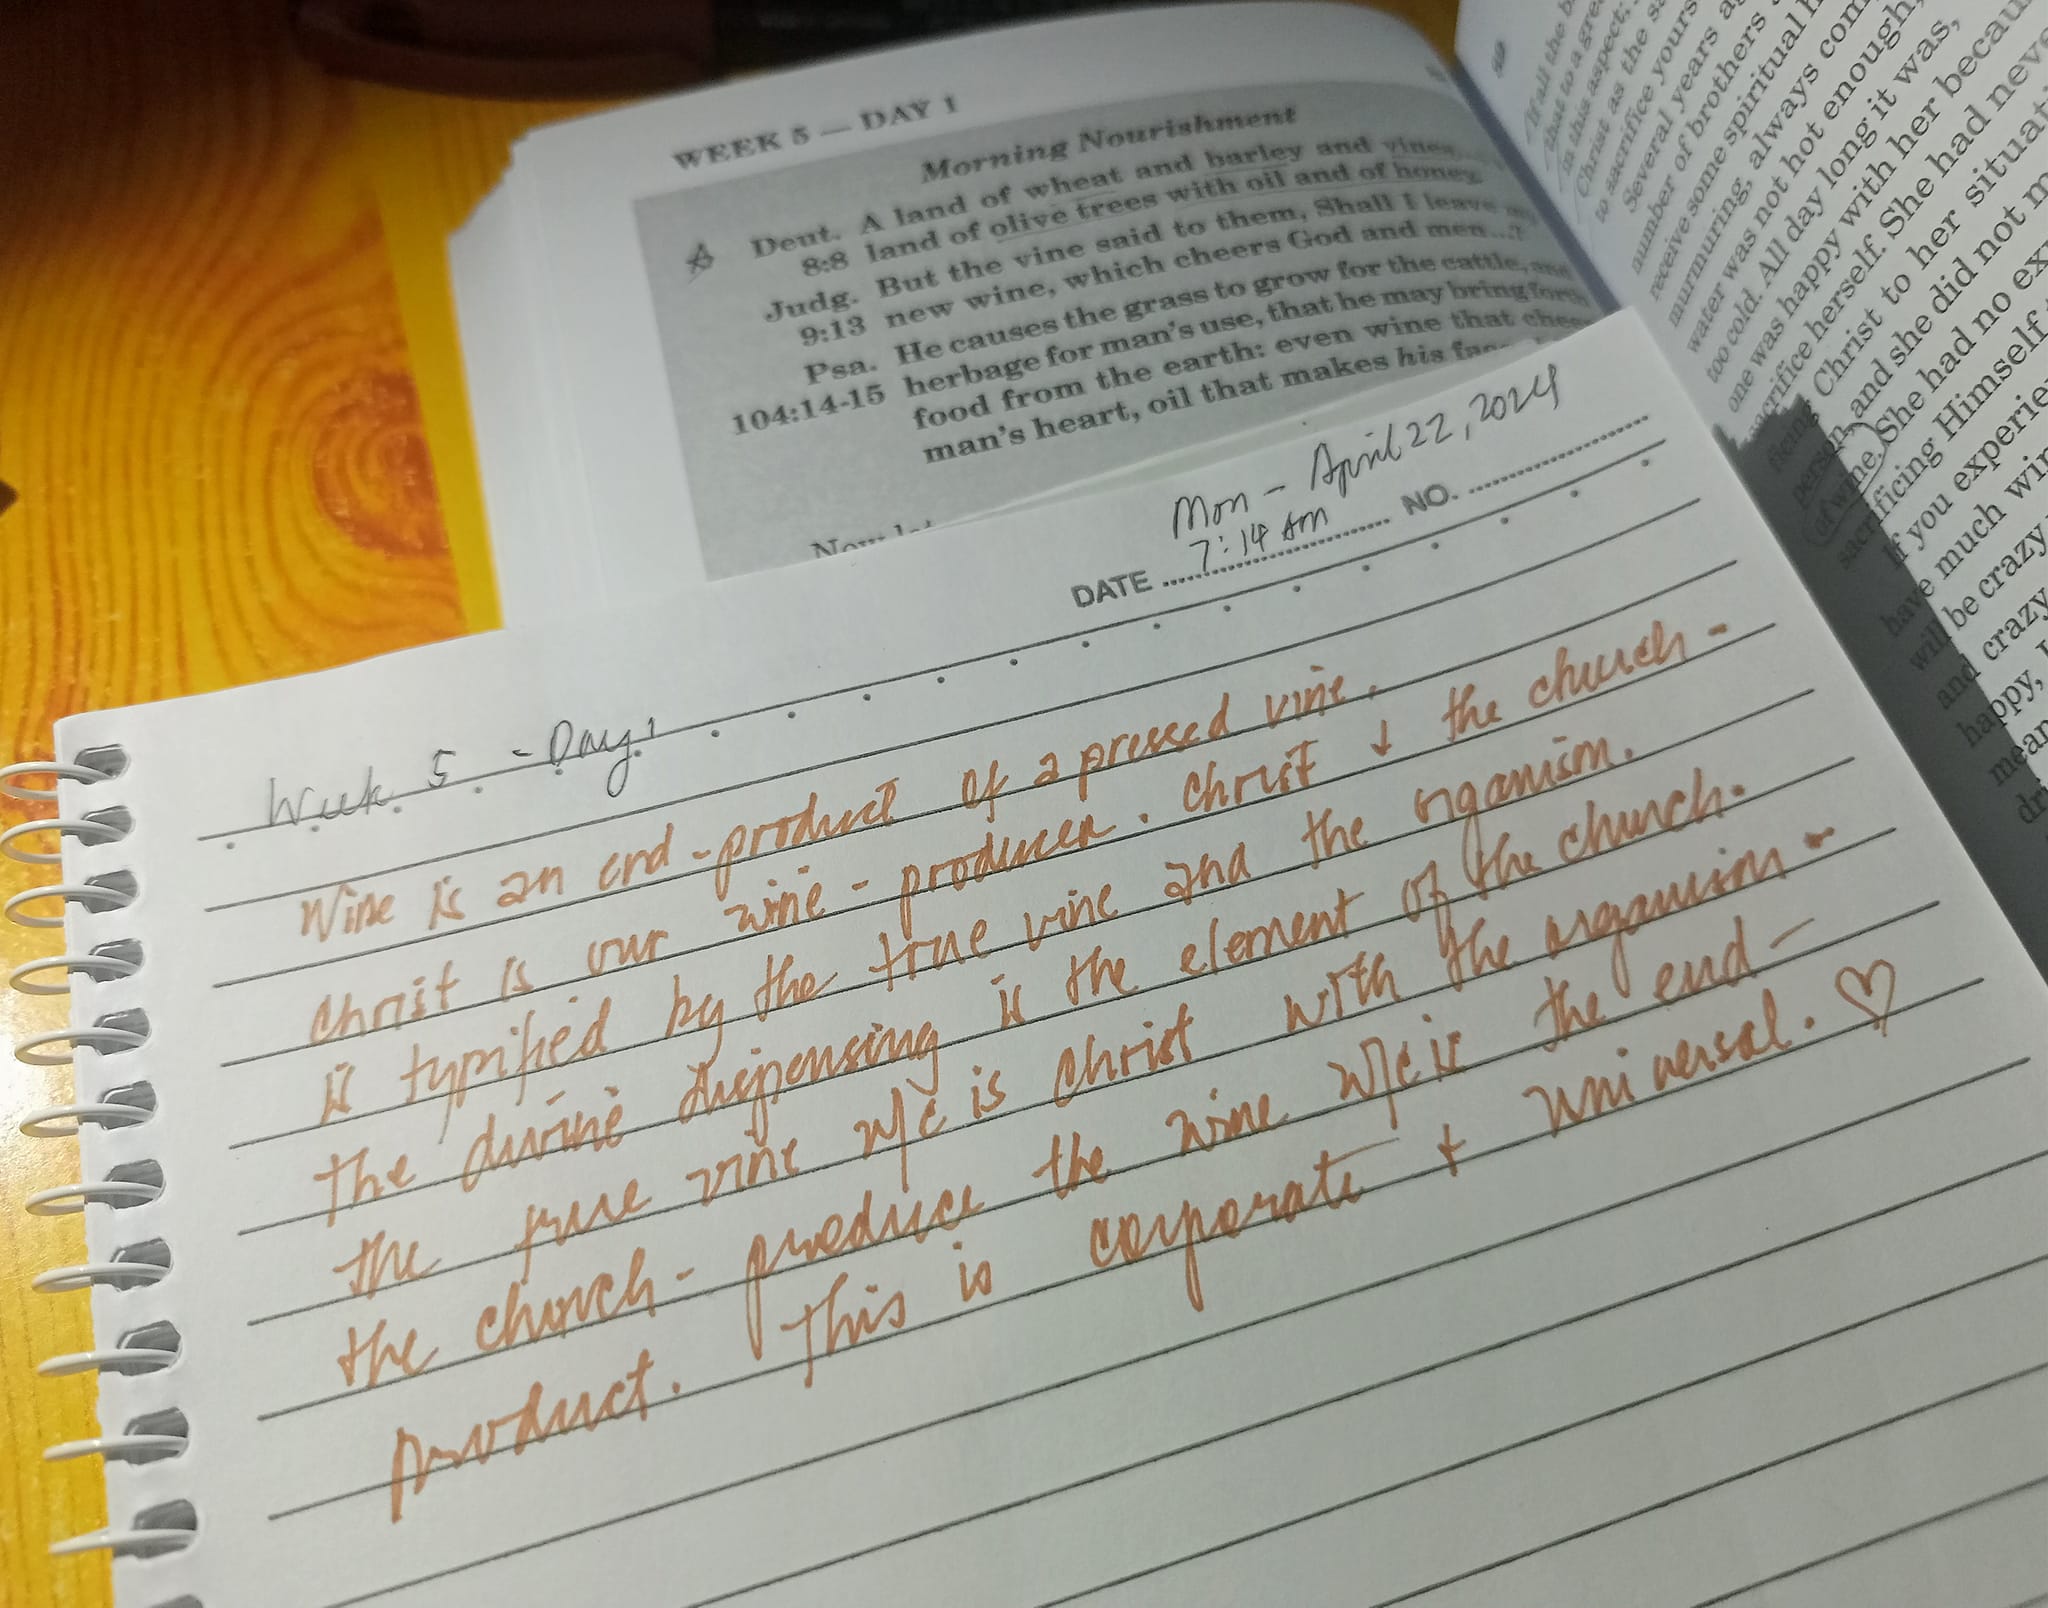 WEEK 5 — DAY 1
Morning Nourishment
Deut. A land of wheat and barley and vines
8:8 land of olive trees with oil and of honey
Judg. But the vine said to them, Shall I leave my
9:13 new wine, which cheers God and men...?
Psa. He causes the grass to grow for the cattle, and
104:14-15 herbage for man's use, that he may bring forth
food from the earth: even wine that cheers
man's heart, oil that makes his face
Mon - April 22, 2024
7:14 am
DATE NO.
Week 5 - Day 1
Wine is an end-product of a pressed vine.
Christ is our wine-producer. Christ & the church -
is typified by the true vine and the organism.
The divine dispensing is the element of the church.
the true vine w/c is Christ with the organism -
the church - produce the wine w/c is the end -
product. This is corporate + universal. ♡
If all the
that to a
in this aspect:
Christ as the
to sacrifice yours
Several years
number of brothers
receive some spiritual
murmuring, always
water was not hot enough,
too cold. All day long it was,
one was happy with her
sacrifice herself. She had
Christ to her
person, and she did not
of wine. She had no
sacrificing Himself
If you
have much
will be crazy
and crazy
happy,